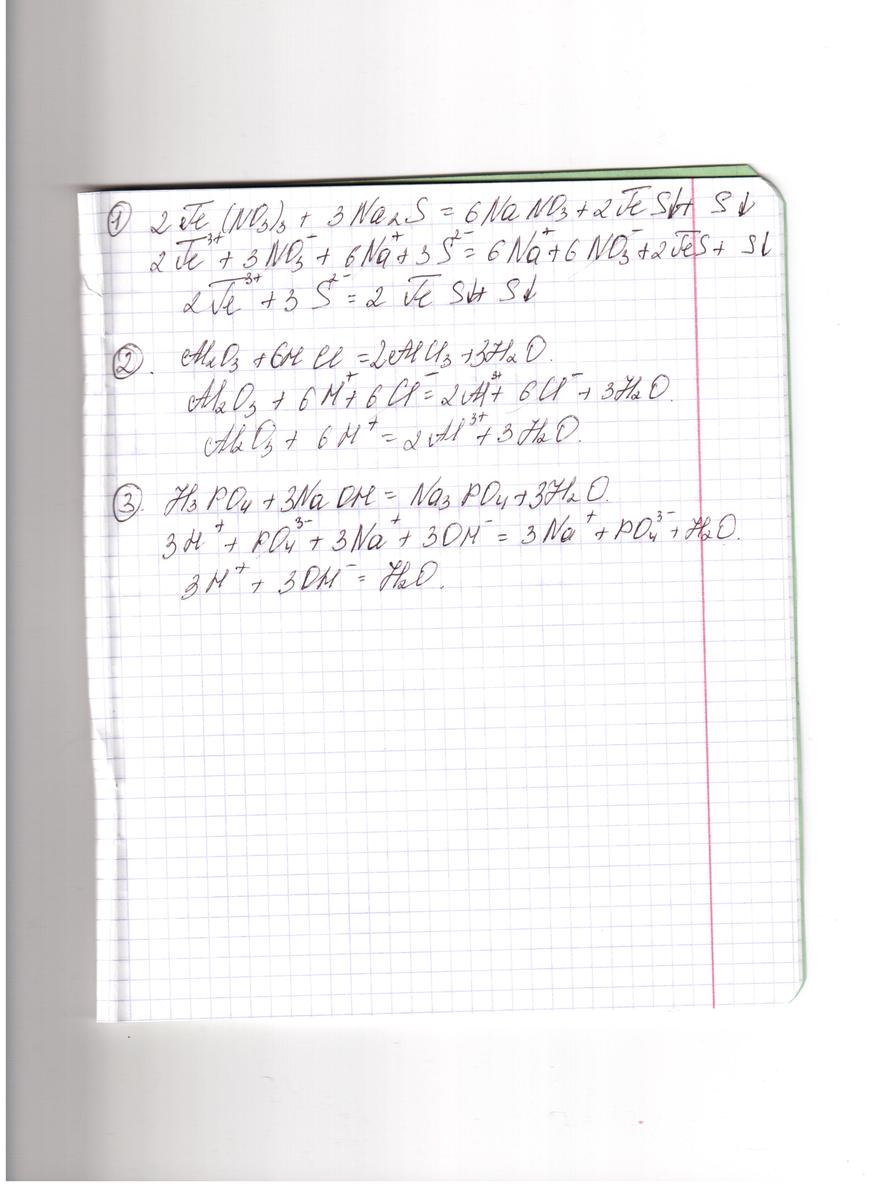 ① 2Fe(NO₃)₃ + 3Na₂S = 6NaNO₃ + 2FeS↓ + S↓
2Fe³⁺ + 3NO₃⁻ + 6Na⁺ + 3S²⁻ = 6Na⁺ + 6NO₃⁻ + 2FeS + S↓
2Fe³⁺ + 3S²⁻ = 2FeS↓ + S↓
②. Al₂O₃ + 6HCl = 2AlCl₃ + 3H₂O.
Al₂O₃ + 6H⁺ + 6Cl⁻ = 2Al³⁺ + 6Cl⁻ + 3H₂O.
Al₂O₃ + 6H⁺ = 2Al³⁺ + 3H₂O.
③. H₃PO₄ + 3NaOH = Na₃PO₄ + 3H₂O.
3H⁺ + PO₄³⁻ + 3Na⁺ + 3OH⁻ = 3Na⁺ + PO₄³⁻ + H₂O.
3H⁺ + 3OH⁻ = H₂O.